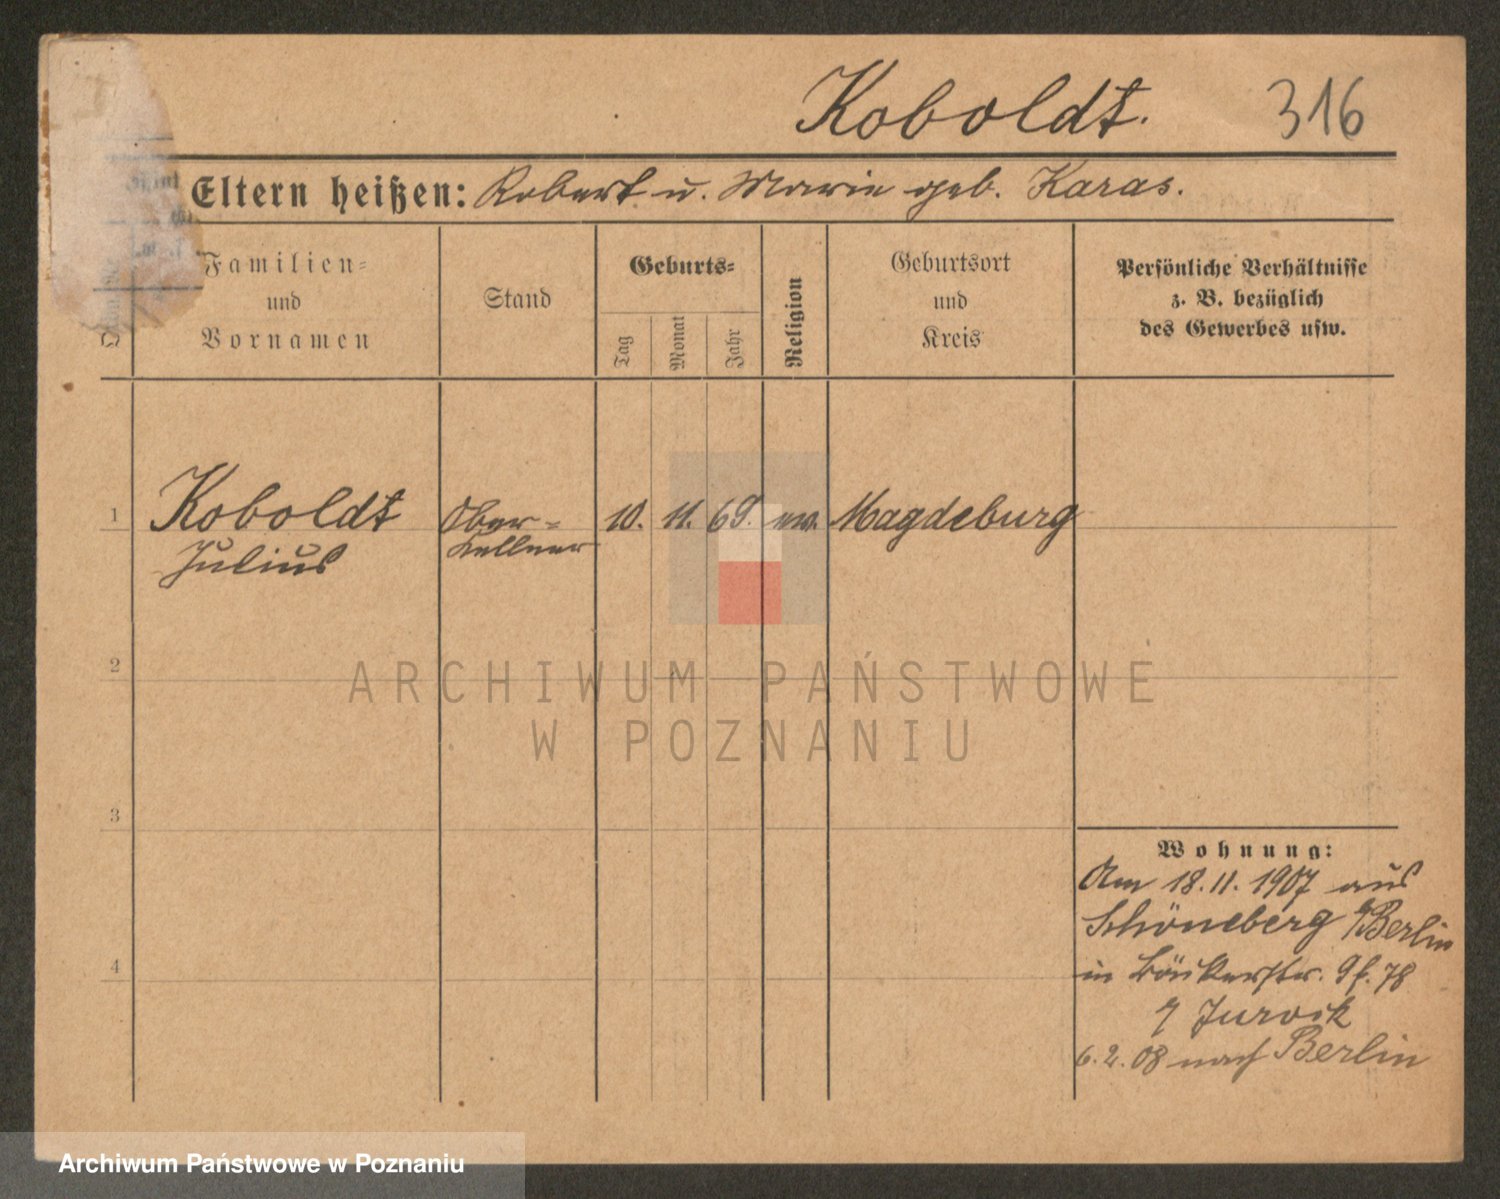 Koboldt. 316
Eltern heißen: Robert u. Marie geb. Karas.
Familien=
und
Vornamen
Stand
Geburts=
Tag
Monat
Jahr
Religion
Geburtsort
und
Kreis
Persönliche Verhältnisse
z. B. bezüglich
des Gewerbes usw.
1 Koboldt Ober= 10. 11. 69. ev. Magdeburg
Julius Kellner
2
ARCHIWUM PAŃSTWOWE
W POZNANIU
3
Wohnung:
Am 18.11.1907 aus
Schöneberg b/Berlin
in 78
Jurock
6.2.08 nach Berlin
4
Archiwum Państwowe w Poznaniu